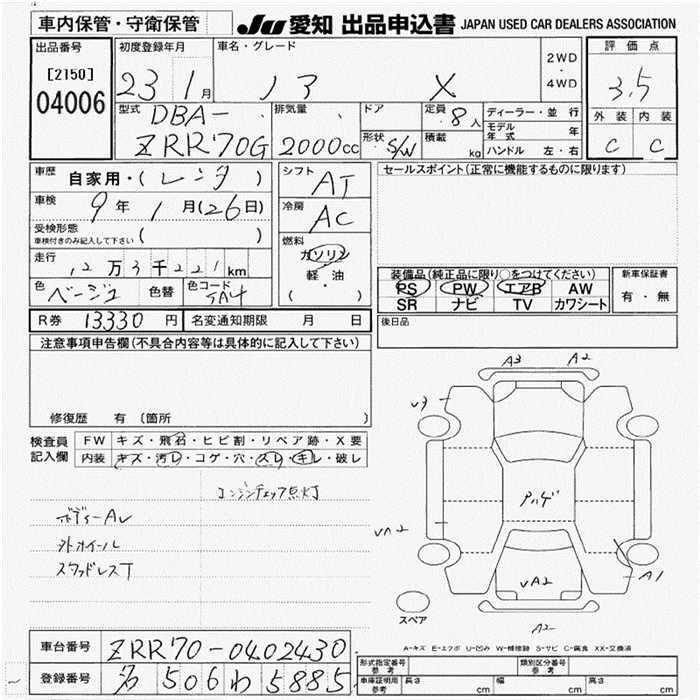 車内保管・守衛保管
JU 愛知 出品申込書 JAPAN USED CAR DEALERS ASSOCIATION
出品番号
[2150]
04006
初度登録年月
23 1 月
車名・グレード
ノア X
2WD
・
4WD
評価点
3.5
外装 内装
C C
型式
DBA-
ZRR70G
排気量
2000cc
ドア
形状 S/W
定員 8 人
積載 kg
ディーラー・並行
モデル年式 年
ハンドル 左・右
車歴
自家用・( レンタ )
車検
9 年 1 月(26日)
受検形態
車検付きのみ記入して下さい ( )
走行
12 万 3 千 221 km
色 ベージュ 色替 色コード 5A4
シフト
AT
冷房
AC
燃料
ガソリン
軽・油
( ・ )
セールスポイント(正常に機能するものに限ります)
装備品(純正品に限り○をつけてください)
PS PW エアB AW
SR ナビ TV カワシート
新車保証書
有・無
R券 13330 円 名変通知期限 月 日
後日品
注意事項申告欄(不具合内容等は具体的に記入して下さい)
修復歴 有(箇所 )
検査員
記入欄
FW キズ・飛石・ヒビ割・リペア跡・X要
内装 キズ・汚レ・コゲ・穴・スレ・キレ・破レ
エンジンチェック点灯
ボディーAU
外ホイール
スタッドレスT
A3 A2
U3
アハゲ
UA2
A1
UA2
A2
スペア
A-キズ E-エクボ U-凹み W-補修跡 S-サビ C-腐食 XX-交換済
車台番号 ZRR70-0402430
登録番号 506わ5885
形式指定番号
参考
類別区分番号
参考
車庫証明用
参考
長さ cm 幅 cm 高さ cm